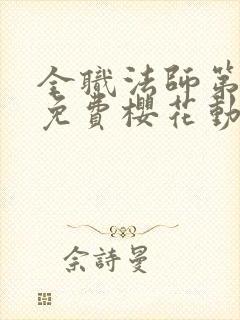 全職法師第
免費櫻花動
佘詩曼